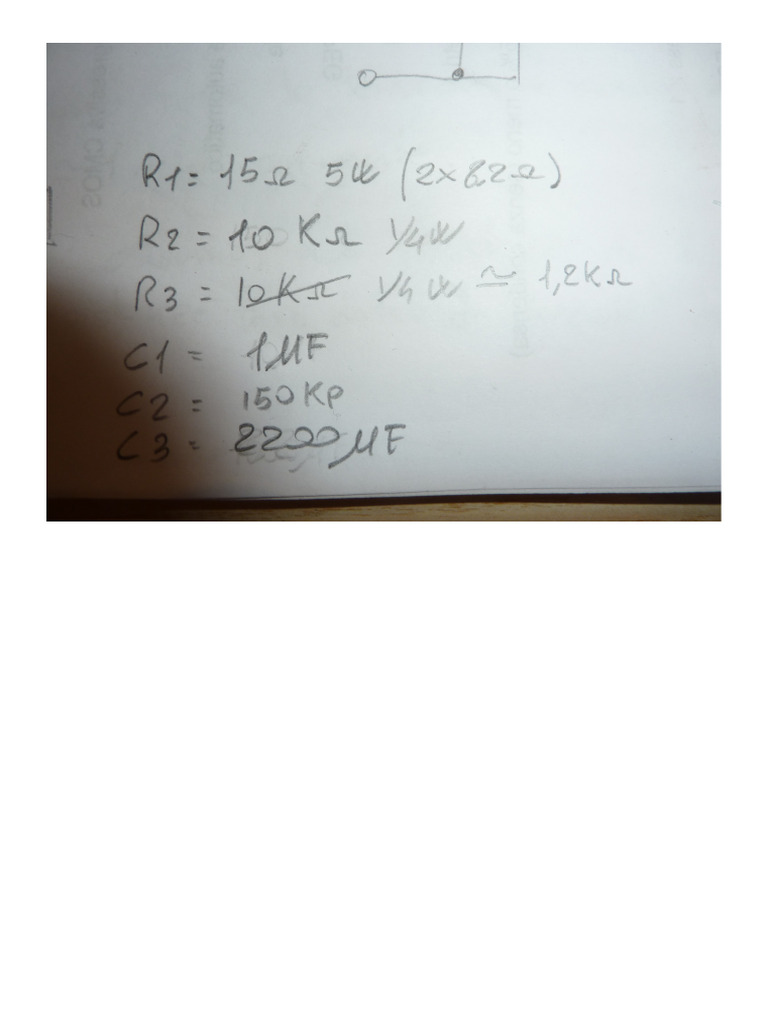 R1 = 15Ω 5W (2x8,2Ω)
R2 = 10 KΩ 1/4W
R3 = ~~10KΩ~~ 1/4W ≃ 1,2KΩ
C1 = 1µF
C2 = 150Kp
C3 = 2200µF
CMOS